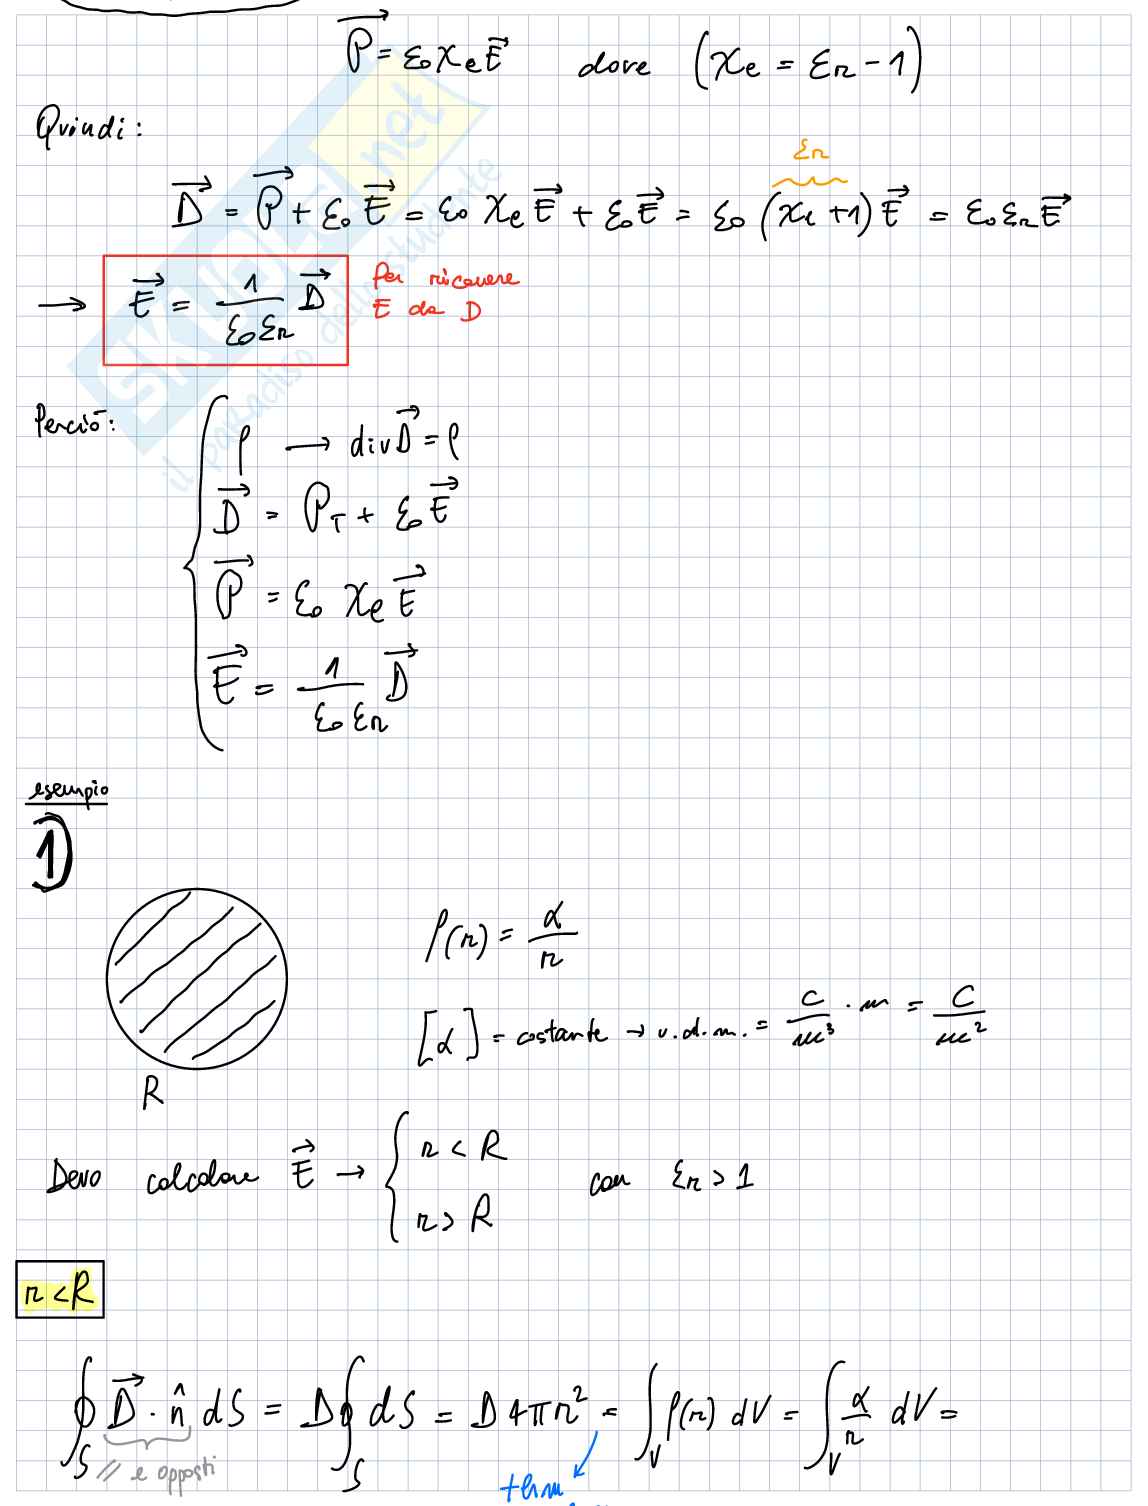 P⃗ = ε₀ χe E⃗ dove (χe = εr - 1)
Quindi:
εr
D⃗ = P⃗ + ε₀ E⃗ = ε₀ χe E⃗ + ε₀ E⃗ = ε₀ (χe + 1) E⃗ = ε₀ εr E⃗
→ E⃗ = 1/(ε₀ εr) D⃗ Per ricavere
E da D
SKUOLA.net
il paradiso dello studente
Perciò:
ρ → div D⃗ = ρ
D⃗ = P_T + ε₀ E⃗
P⃗ = ε₀ χe E⃗
E⃗ = 1/(ε₀ εr) D⃗
esempio
1)
ρ(r) = α/r
[α] = costante → u.d.m. = C/m³ · m = C/m²
R
Devo calcolare E⃗ → { r < R
r > R con εr > 1
r < R
∮_S D⃗ · n̂ dS = D ∮_S dS = D 4πr² = ∫_V ρ(r) dV = ∫_V α/r dV =
// e opposti